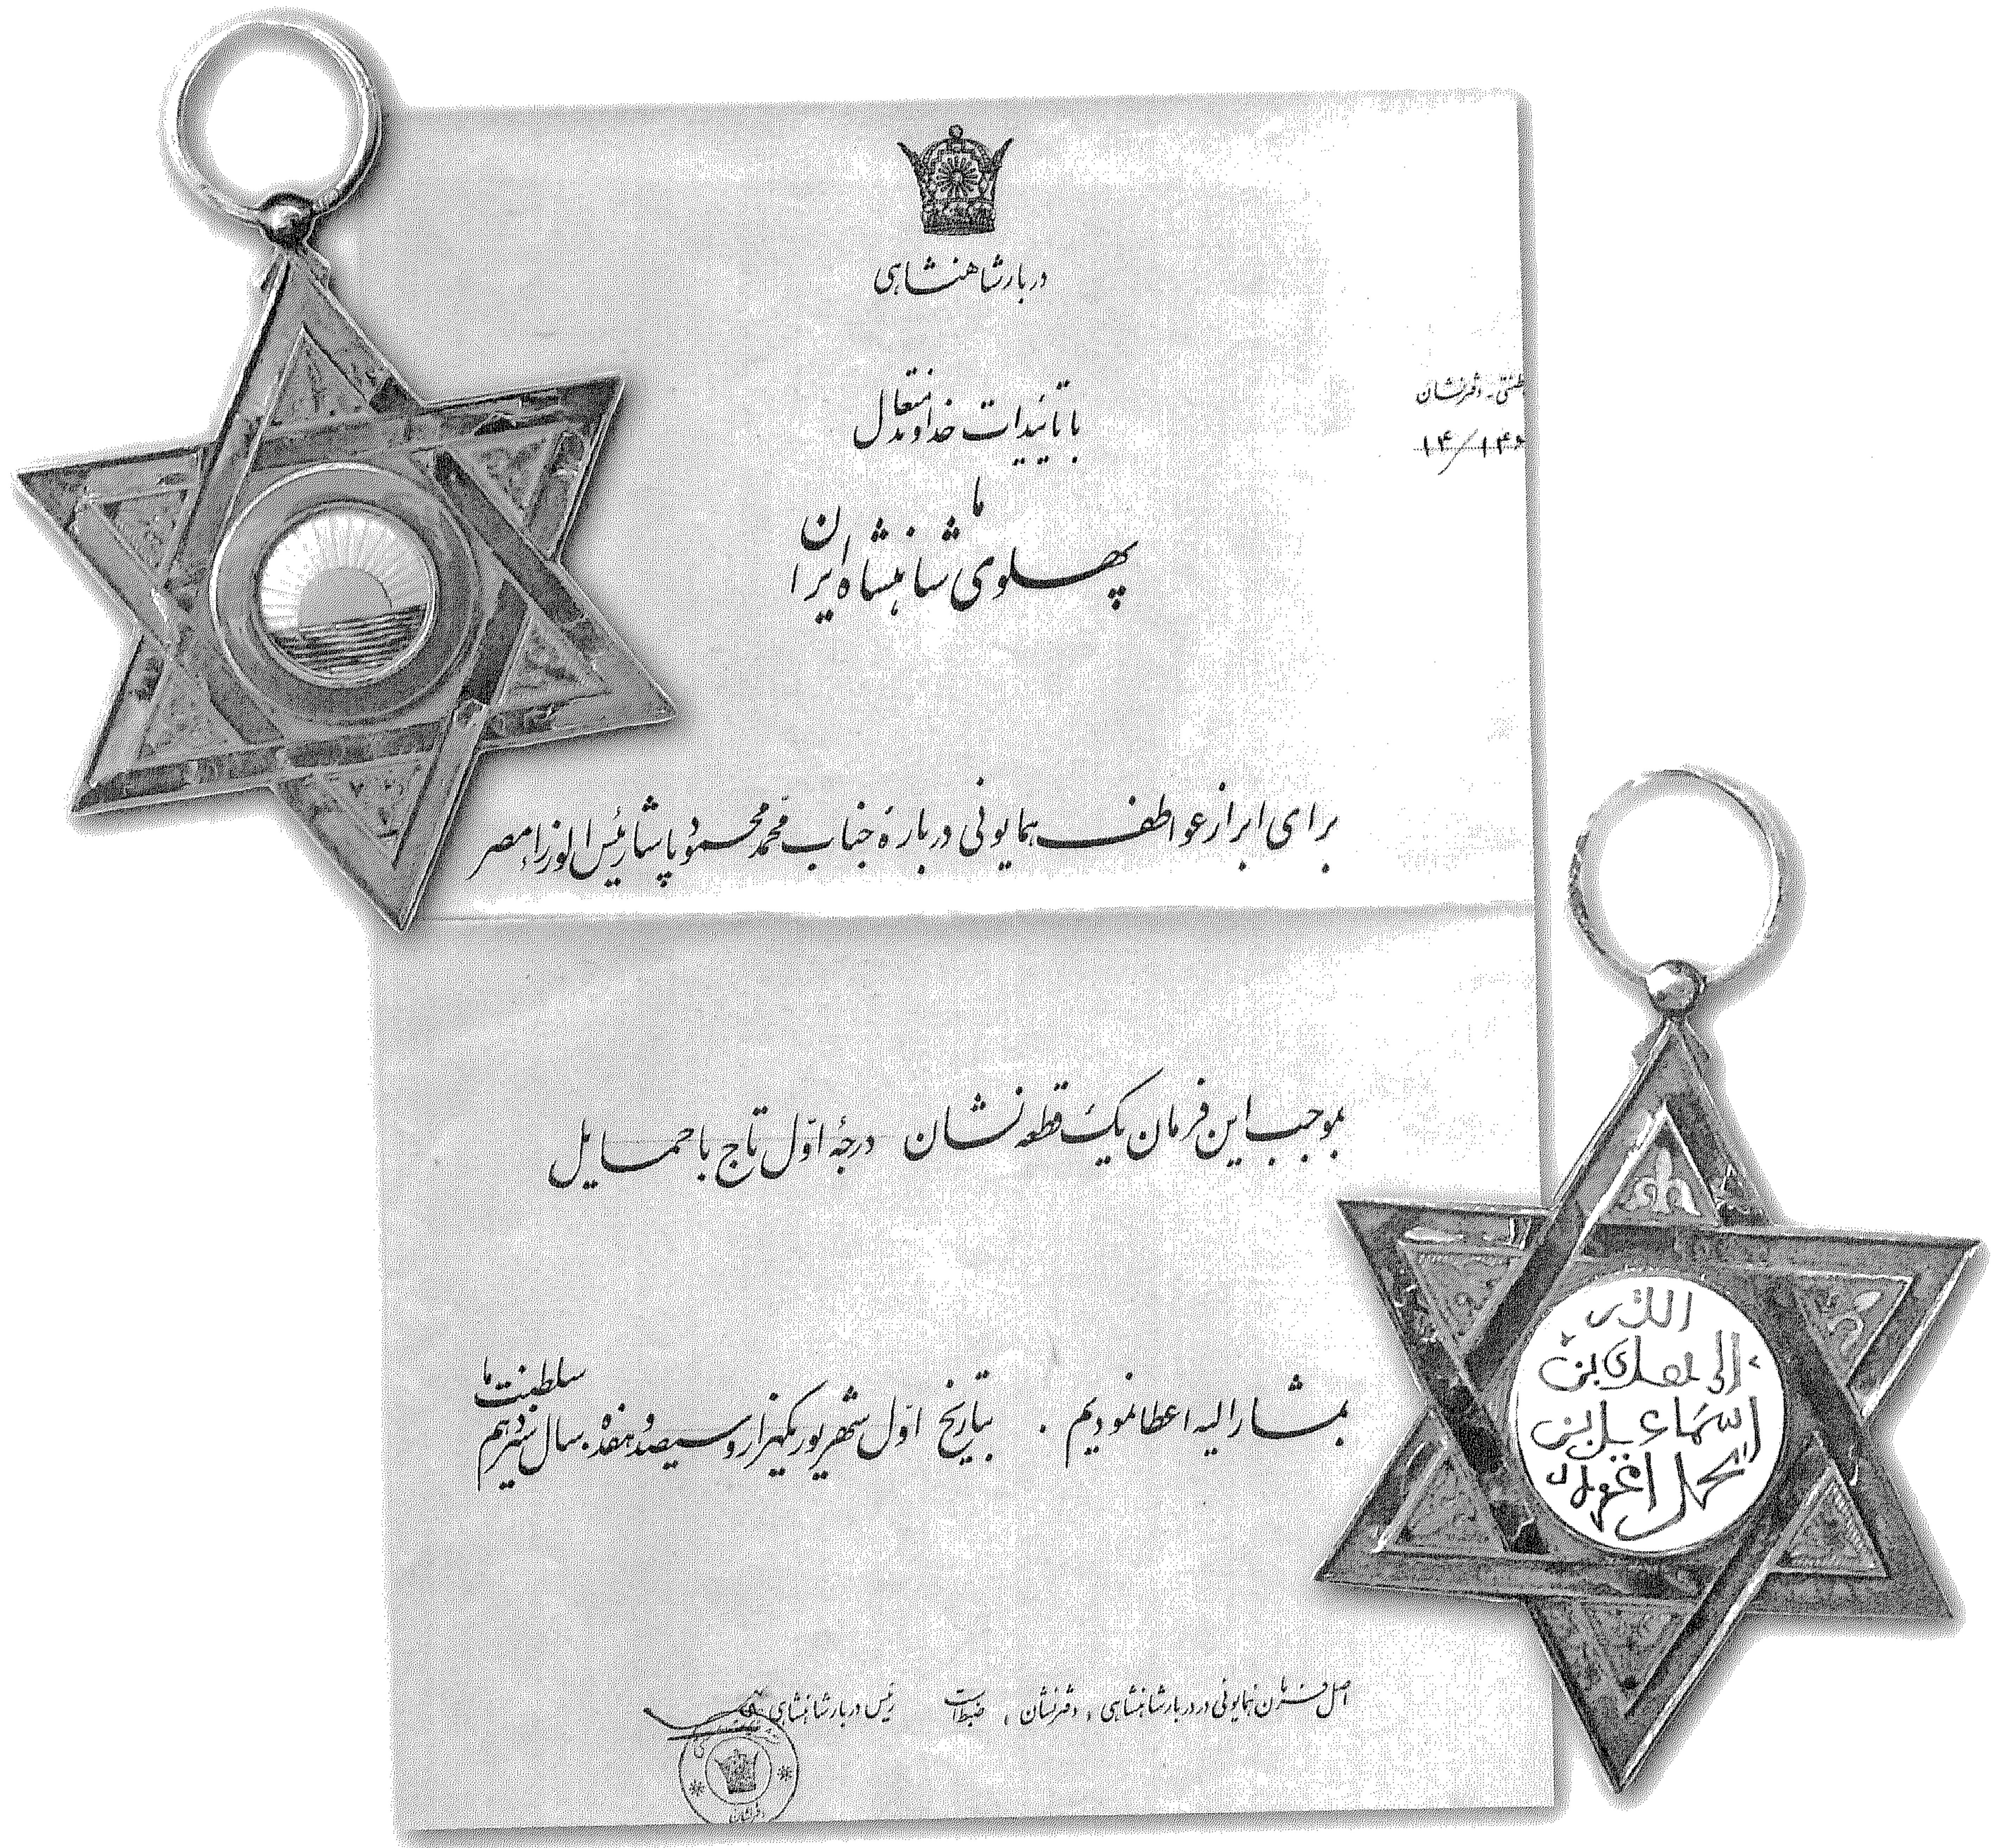 دربار شاهنشاهی
با تأییدات خداوند متعال
ما
پهلوی شاهنشاه ایران
دفتر نشان
برای ابراز عواطف همایونی درباره جناب محمد محمود پاشا رئیس الوزراء مصر
بموجب این فرمان یک قطعه نشان درجهٔ اوّل تاج با حمایل
بمشارالیه اعطا نمودیم . بتاریخ اوّل شهریور یکهزار و سیصد و هفده . سال سیزدهم سلطنت ما
اصل فرمان همایونی در دربار شاهنشاهی ، دفتر نشان ، ضبط است رئیس دربار شاهنشاهی
دفتر نشان
إسماعيل بن